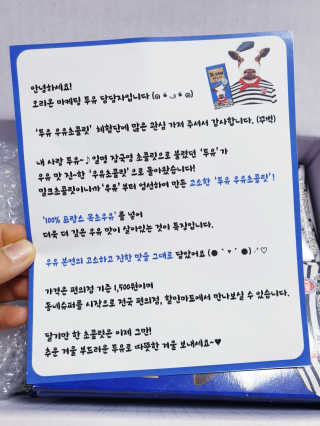 안녕하세요!
오리온 마케팅 투유 담당자입니다 (๑❛ᴗ❛๑)
'투유 우유초콜릿' 체험단에 많은 관심 가져 주셔서 감사합니다. (꾸벅)
내 사랑 투유~♪ 일명 장국영 초콜릿으로 불렸던 '투유'가
우유 맛 진~한 '우유초콜릿'으로 돌아왔습니다!
밀크초콜릿이니까 '우유'부터 엄선하여 만든 고소한 '투유 우유초콜릿'!
'100% 프랑스 목초우유'를 넣어
더욱 더 깊은 우유 맛이 살아있는 것이 특징입니다.
우유 본연의 고소하고 진한 맛을 그대로 담았어요 (●'▾'●)♡
가격은 편의점 기준 1,500원이며
동네슈퍼를 시작으로 전국 편의점, 할인마트에서 만나보실 수 있습니다.
달기만 한 초콜릿은 이제 그만!
추운 겨울 부드러운 투유로 따뜻한 겨울 보내세요~♥